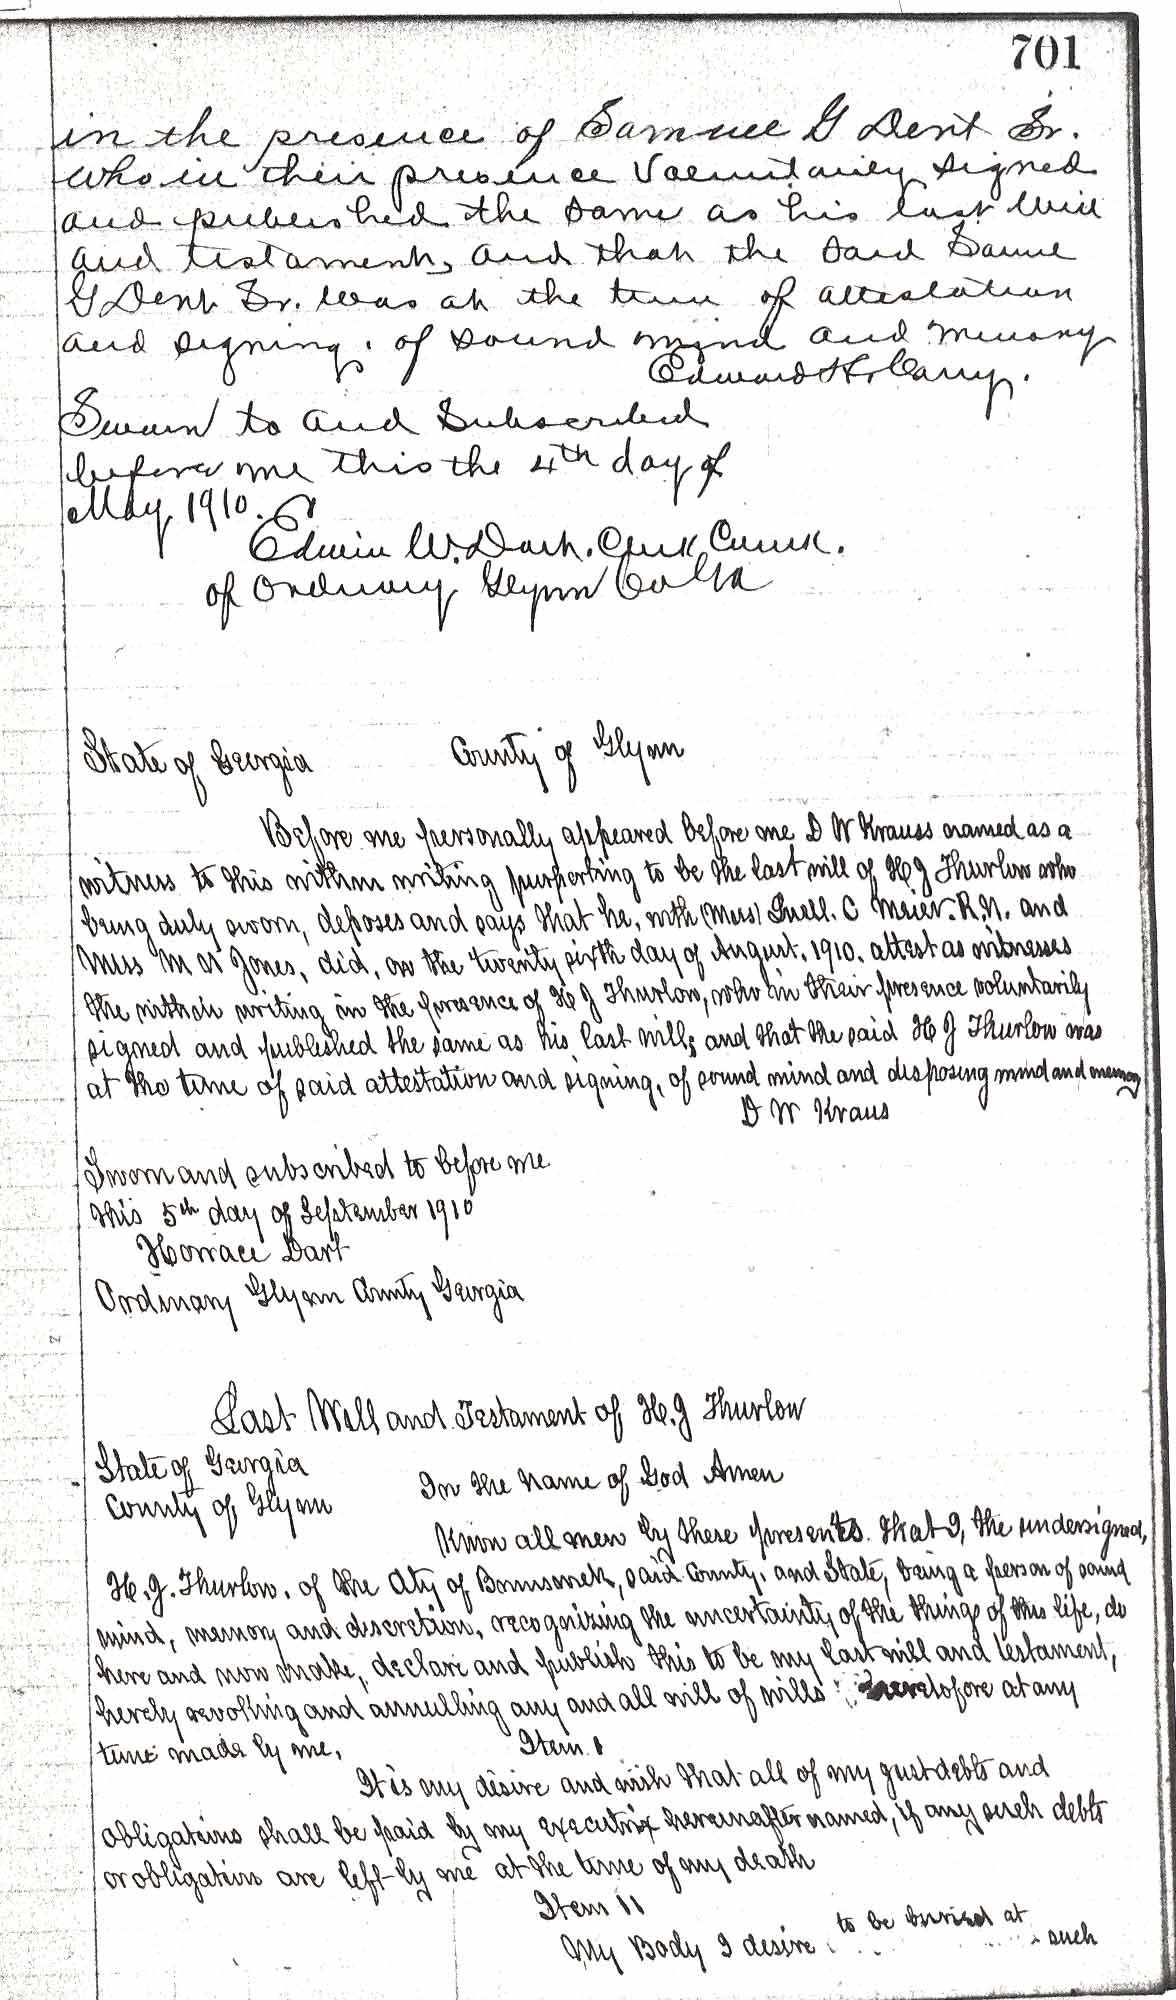 701
in the presence of Samuel G Dent Sr.
who in their presence Voluntarily signed
and published the same as his last Will
and testament, and that the said Samue
G Dent Sr. was at the time of attestation
and signing. of sound mind and memory
Edward H.
Sworn to and Subscribed
before me this the 4th day of
May 1910.
Edwin W. Dart. Clerk Court.
of Ordinary Glynn Co Ga
State of Georgia County of Glynn
Before me personally appeared before me D W Krauss named as a
witness to this within writing purporting to be the last will of H J Thurlow who
being duly sworn, deposes and says that he, with (Miss) Luell. C Meier. R.N. and
Miss M N Jones, did, on the twenty sixth day of August. 1910. attest as witnesses
the within writing in the presence of H J Thurlow, who in their presence voluntarily
signed and published the same as his last will; and that the said H J Thurlow was
at the time of said attestation and signing, of sound mind and disposing mind and memory
D W Kraus
Sworn and subscribed to before me
this 5th day of September 1910
Horrace Dart
Ordinary Glynn County Georgia
Last Will and Testament of H. J Thurlow
State of Georgia
County of Glynn In the name of God Amen
Know all men by these presents that I, the undersigned,
H. J. Thurlow. of the City of Brunswick, said County. and State, being a person of sound
mind, memory and discretion, recognizing the uncertainty of the things of this life, do
here and now make, declare and publish this to be my last will and testament,
hereby revoking and annulling any and all will of wills heretofore at any
time made by me.
Item 1
It is my desire and wish that all of my just debts and
obligations shall be paid by my executrix hereinafter named, if any such debts
or obligations are left by me at the time of my death
Item 11
My Body I desire to be buried at such